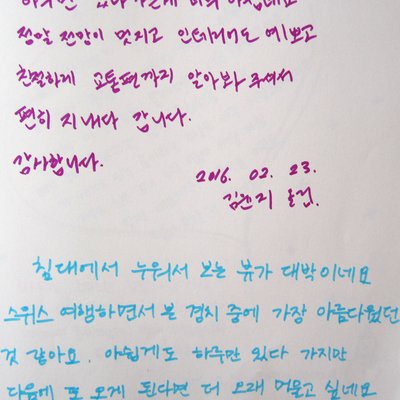 정말 전망이 멋지고 인테리어도 예쁘고
친절하게 교통편까지 알아봐 주셔서
편히 지내다 갑니다.
감사합니다.
2016. 02. 23.
침대에서 누워서 보는 뷰가 대박이네요
스위스 여행하면서 본 경치 중에 가장 아름다웠던
것 같아요. 아쉽게도 하루만 있다 가지만
다음에 또 오게 된다면 더 오래 머물고 싶네요